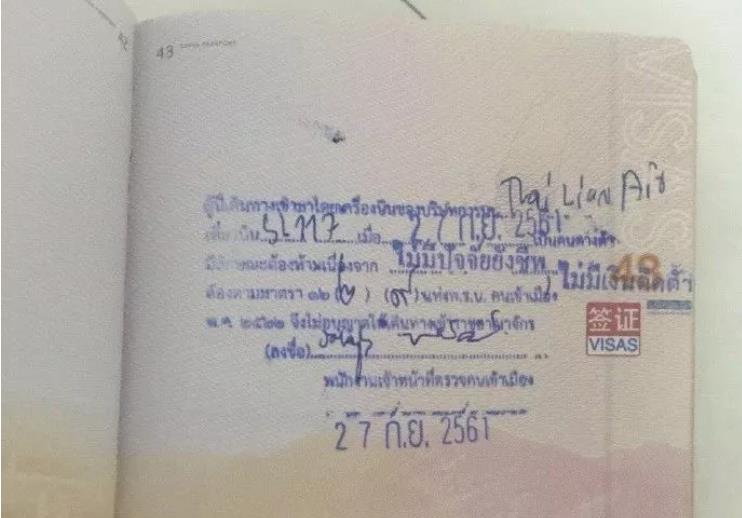 43 CHINA PASSPORT
ผู้นี้เดินทางเข้ามาโดยเครื่องบินของบริษัท Thai Lion Air
เที่ยวบิน SL117 เมื่อ 27 ก.ย. 2561 เป็นคนต่างด้าว
มีลักษณะต้องห้ามเนื่องจาก ไม่มีปัจจัยยังชีพ, ไม่มีเงินติดตัว
ต้องตามมาตรา ๑๒ (๒) (๙) แห่งพ.ร.บ. คนเข้าเมือง
พ.ศ. ๒๕๒๒ จึงไม่อนุญาตให้เดินทางเข้าราชอาณาจักร
(ลงชื่อ)
พนักงานเจ้าหน้าที่ตรวจคนเข้าเมือง
27 ก.ย. 2561
48
签证
VISAS